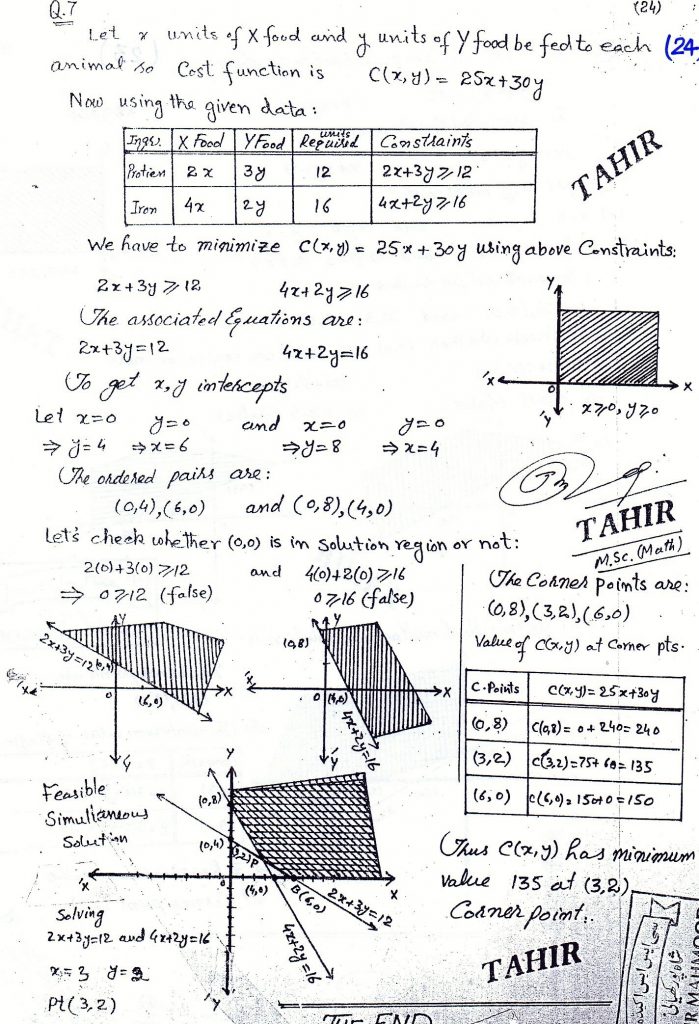 Q.7
(24)
Let x units of X food and y units of Y food be fed to each (24
animal so Cost function is C(x,y) = 25x+30y
Now using the given data:
Ingr. X Food Y Food units Required Constraints
Protien 2x 3y 12 2x+3y⩾12
Iron 4x 2y 16 4x+2y⩾16
TAHIR
We have to minimize C(x,y) = 25x+30y using above Constraints:
2x+3y⩾12 4x+2y⩾16
The associated Equations are:
2x+3y=12 4x+2y=16
To get x,y intercepts
Y
'x o x
'y x⩾0, y⩾0
Let x=0 y=0 and x=0 y=0
⇒ y=4 ⇒x=6 ⇒y=8 ⇒x=4
The ordered pairs are:
(0,4),(6,0) and (0,8),(4,0)
TAHIR
M.Sc. (Math)
Let's check whether (0,0) is in solution region or not:
2(0)+3(0)⩾12 and 4(0)+2(0)⩾16
⇒ 0⩾12 (false) 0⩾16 (false)
2x+3y=12 (0,4)
Y
'x o (6,0) x
'y
(0,8)
Y
'x o (4,0) x
'y
4x+2y=16
The Corner points are:
(0,8),(3,2),(6,0)
Value of C(x,y) at Corner pts.
C.Points C(x,y)=25x+30y
(0,8) C(0,8)= 0+240=240
(3,2) C(3,2)=75+60=135
(6,0) C(6,0)=150+0=150
Feasible
Simultaneous
Solution
Y
(0,8)
(0,4)
(3,2)P
'x o (4,0) B(6,0) x
2x+3y=12
4x+2y=16
'Y
Solving
2x+3y=12 and 4x+2y=16
x=3 y=2
Pt(3,2)
Thus C(x,y) has minimum
value 135 at (3,2)
Corner point.
TAHIR
THE END